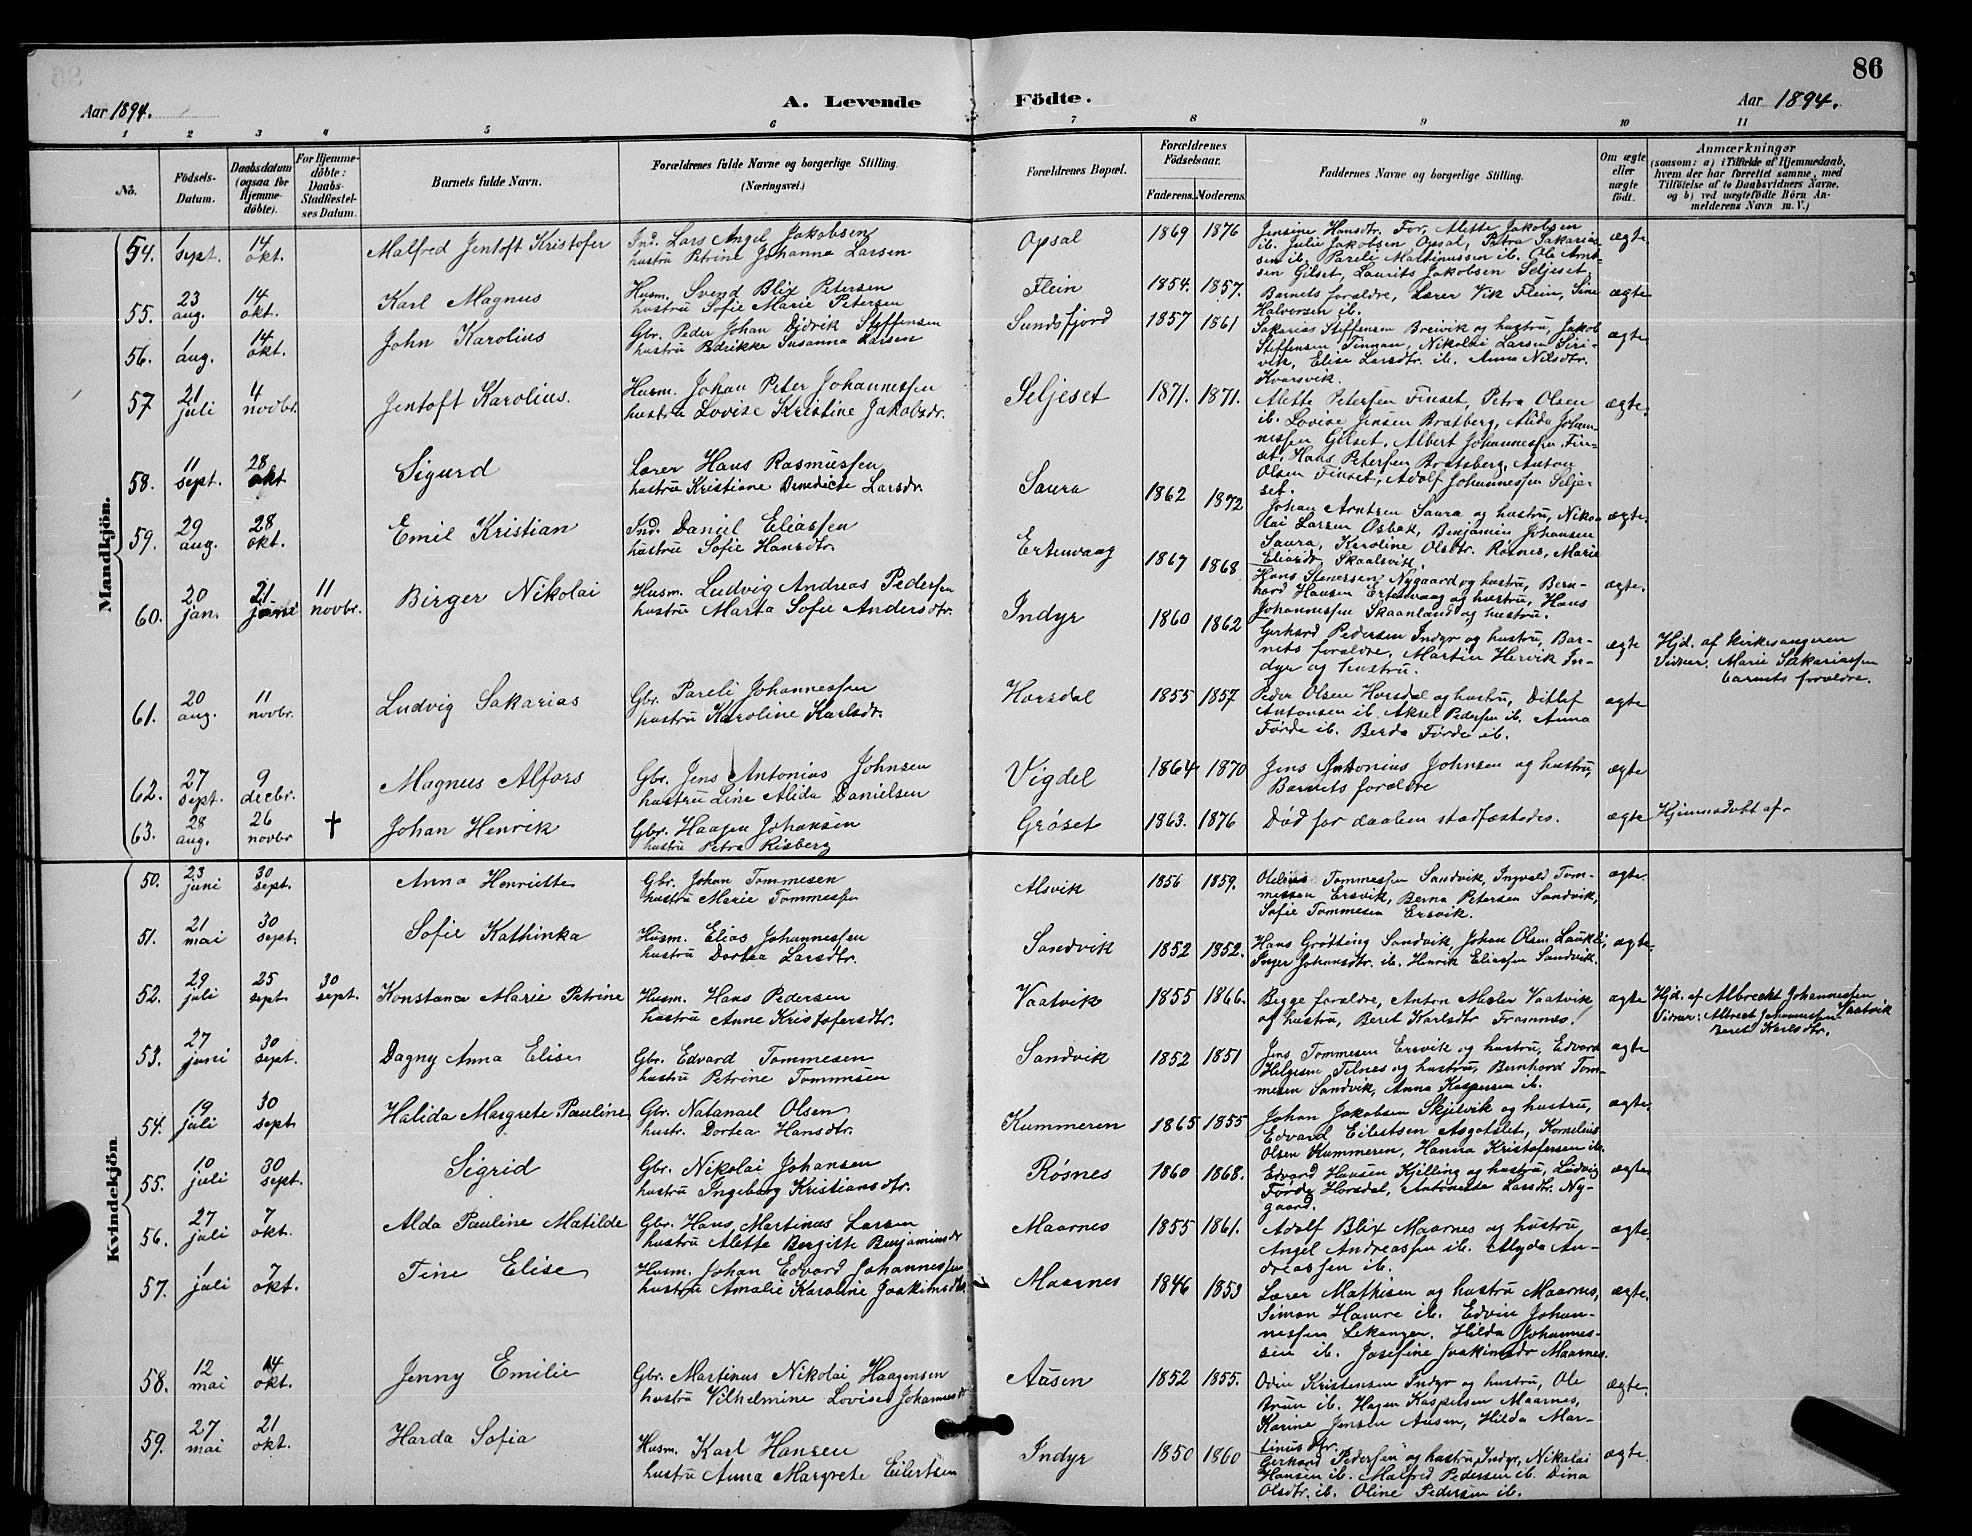 86
Aar 1894.
A. Levende Födte.
Aar 1894.
1 2 3 4 5 6 7 8 9 10 11
No.
Födsels-Datum.
Daabsdatum (ogsaa for Hjemme-döbte).
For Hjemme-döbte: Daabs-Stadfæstel-ses Datum.
Barnets fulde Navn.
Forældrenes fulde Navne og borgerlige Stilling. (Næringsvei.)
Forældrenes Bopæl.
Forældrenes Födselsaar.
Faderens. Moderens.
Faddernes Navne og borgerlige Stilling.
Om ægte eller uægte födt.
Anmærkninger
(saasom: a) i Tilfælde af Hjemmedaab,
hvem der har forrettet samme, med
Tilföielse af to Daabsvidners Navne,
og b) ved uægtefödte Börn An-
melderens Navn m. V.)
Mandkjön.
54. 1 sept. 14 okt. Malfred Jentoft Kristofer
Ind. Lars Angel Jakobsen
hustru Petrine Johanna Larsen
Opsal 1869 1876
Jensine Hansdtr. For, Alette Jakobsen
ib. Julie Jakobsen Opsal, Petra Sakarias-
sen ib. Pareli Martinussen ib. Ole Arnt-
sen Gilset, Laurits Jakobsen Seljeset.
ægte
55. 23 aug. 14 okt. Karl Magnus
Husm. Svend Blix Petersen
hustru Sofie Marie Petersen
Flein 1854. 1857.
Barnets forældre, Lærer Vik Flein, Sine
Halvorsen ib.
ægte
56. 1 aug. 14 okt. John Karolius
Gbr. Peder Johan Didrik Steffensen
hustru Bdrikke Susanna Larsen
Sundsfjord 1857 1861
Sakarias Steffensen Breivik og hustru, Jakob
Steffensen Finnan, Nikolai Larsen Siri-
vik, Elise Larsdtr. ib. Anna Nilsdtr.
Kvarsvik.
ægte
57 21 juli 4 novbr. Jentoft Karolius.
Husm. Johan Peter Johannessen
hustru Lovise Kristine Jakobsdr.
Seljeset 1871. 1871.
Alette Petersen Finset, Petra Olsen
ib. Lovise Jensen Bratberg, Alida Johan-
nessen Gilset, Albert Johannessen Fin-
set, Hans Petersen Bratsberg, Anton
Olsen Finset, Adolf Johannessen Selje-
set.
ægte.
58. 11 sept. 28 okt Sigurd
Lærer Hans Rasmussen
hustru Kristiane Benedicte Larsdr
Saura 1862 1872
Johan Arntsen Saura og hustru, Niko-
lai Larsen Osbak, Benjamin Johansen
Saura, Karoline Olsdtr. Røsnes, Marie
Eliasdr Skaalsvik.
ægte.
59. 29 aug. 28 okt. Emil Kristian
Ind. Daniel Eliassen
hustru Sofie Hansdtr.
Ertenvaag 1867 1868
Hans Stenersen Nygaard og hustru, Bern-
hard Hansen Ertenvaag og hustru, Hans
Johannessen Skaanland og hustru.
ægte.
60. 20 jan. 21 juni 11 novbr. Birger Nikolai
Husm. Ludvig Andreas Pedersen
hustru Marta Sofie Andersdtr.
Indyr 1860 1862
Gerhard Pedersen Indyr og hustru, Bar-
nets forældre, Martin Hervik In-
dyr og hustru.
ægte
Hjd. af kirkesangeren
Vidner, Marie Sakariassen
barnets forældre.
61. 20 aug. 11 novbr. Ludvig Sakarias
Gbr. Pareli Johannessen
hustru Karoline Karlsdtr.
Horsdal 1855 1857
Peder Olsen Horsdal og hustru, Ditlef
Antonsen ib. Aksel Pedersen ib. Anna
Førde ib. Berda Førde ib.
ægte
62. 27 sept. 9 decbr. Magnus Alfors
Gbr. Jens Antonius Johnsen
hustru Line Alida Danielsen
Vigdel 1864 1870
Jens Antonius Johnsen og hustru,
Barnets forældre
ægte
63. 28 aug. 26 novbr † Johan Henrik
Gbr. Haagen Johansen
hustru Petra Risberg
Grøset 1863. 1876
Død før daaben stadfæstedes.
ægte
Hjemmedøbt af
Kvindekjön
50. 23 juni 30 sept. Anna Henriette
Gbr. Johan Tommesen
hustru Marie Tommessen
Alsvik 1856 1859.
Olelius Tommessen Sandvik, Ingvald Tom-
messen Ersvik, Berna Petersen Sandvik,
Sofie Tommesen Ersvik.
ægte.
51. 21 mai 30 sept. Sofie Kathinka
Husm. Elias Johannessen
hustru Dortea Larsdtr.
Sandvik 1852 1852.
Hans Grøtting Sandvik, Johan Olsen Laukli,
Inger Johansdtr. ib. Henrik Eliassen Sandvik.
ægte.
52. 29 juli 25 sept. 30 sept. Konstanse Marie Petrine
Husm. Hans Pedersen
hustru Anne Kristofersdtr.
Vaatvik 1855 1866.
Begge forældre, Anton Meler Vaatvik
og hustru, Beret Karlsdtr Framnes.
ægte
Hjd. af Albrecht Johannessen
Vidner: Albrect Johannessen Vaatvik
Beret Karlsdtr.
53. 27 juni 30 sept. Dagny Anna Elise
Gbr. Edvard Tommesen
hustru Petrine Tommesen
Sandvik 1852 1851
Jens Tommesen Ersvik og hustru, Edvard
Helgesen Telnes og hustru, Bernhard Tom-
mesen Sandvik, Anna Kaspersen ib.
ægte
54. 19 juli 30 sept Halida Margrete Pauline
Gbr. Natanael Olsen
hustr. Dortea Hansdtr.
Kummeren 1865 1855
Johan Jakobsen Skjelvik og hustru,
Edvard Eilertsen Asgotslet, Kornelius
Olsen Kummeren, Hanna Kristofersen ib.
ægte.
55. 10 juli 30 sept. Sigrid
Gbr. Nikolai Johansen
hustru Ingeborg Kristiansdtr.
Røsnes 1860 1868.
Edvard Hansen Kjelling og hustru, Ludvig
Førde Horsdal, Antonette Larsdtr. Ny-
gaard.
ægte
56. 27 juli 7 okt. Alda Pauline Matilde
Gbr. Hans Martinus Larsen
hustru Alette Bergitte Benjaminsdr
Maarnes 1855 1861.
Adolf Blix Maarnes og hustru,
Angel Andreassen ib. Alyda An-
dreassen ib.
ægte.
57. 1 juli 7 okt. Tine Elise
Husm. Johan Edvard Johannessen
hustru Amalie Karoline Joakimsdtr.
Maarnes 1846 1853
Lærer Mathisen og hustru Maarnes,
Simon Hamre ib. Edvin Johan-
nessen Lekanger, Hilda Johannes-
sen ib. Josefine Joakimsdr Maarnes.
ægte.
58. 12 mai 14 okt. Jenny Emilie
Gbr. Martinus Nikolai Haagensen
hustru Vilhelmine Lovise Johannesdr
Aasen 1852 1855.
Odin Kristensen Indyr og hustru, Ole
Bruun ib. Hagen Kaspersen Maarnes,
Karine Jensen Aasen, Hilda Mar-
tinusdtr.
ægte.
59. 27 mai 21 okt. Harda Sofia
Husm. Karl Hansen
hustru Anna Margrete Eilertsen
Indyr 1850 1860
Gerhard Pedersen og hustru Indyr, Nikolai
Hansen ib. Malfred Pedersen ib. Dina
Olsdtr. ib. Oline Pedersen ib.
ægte.